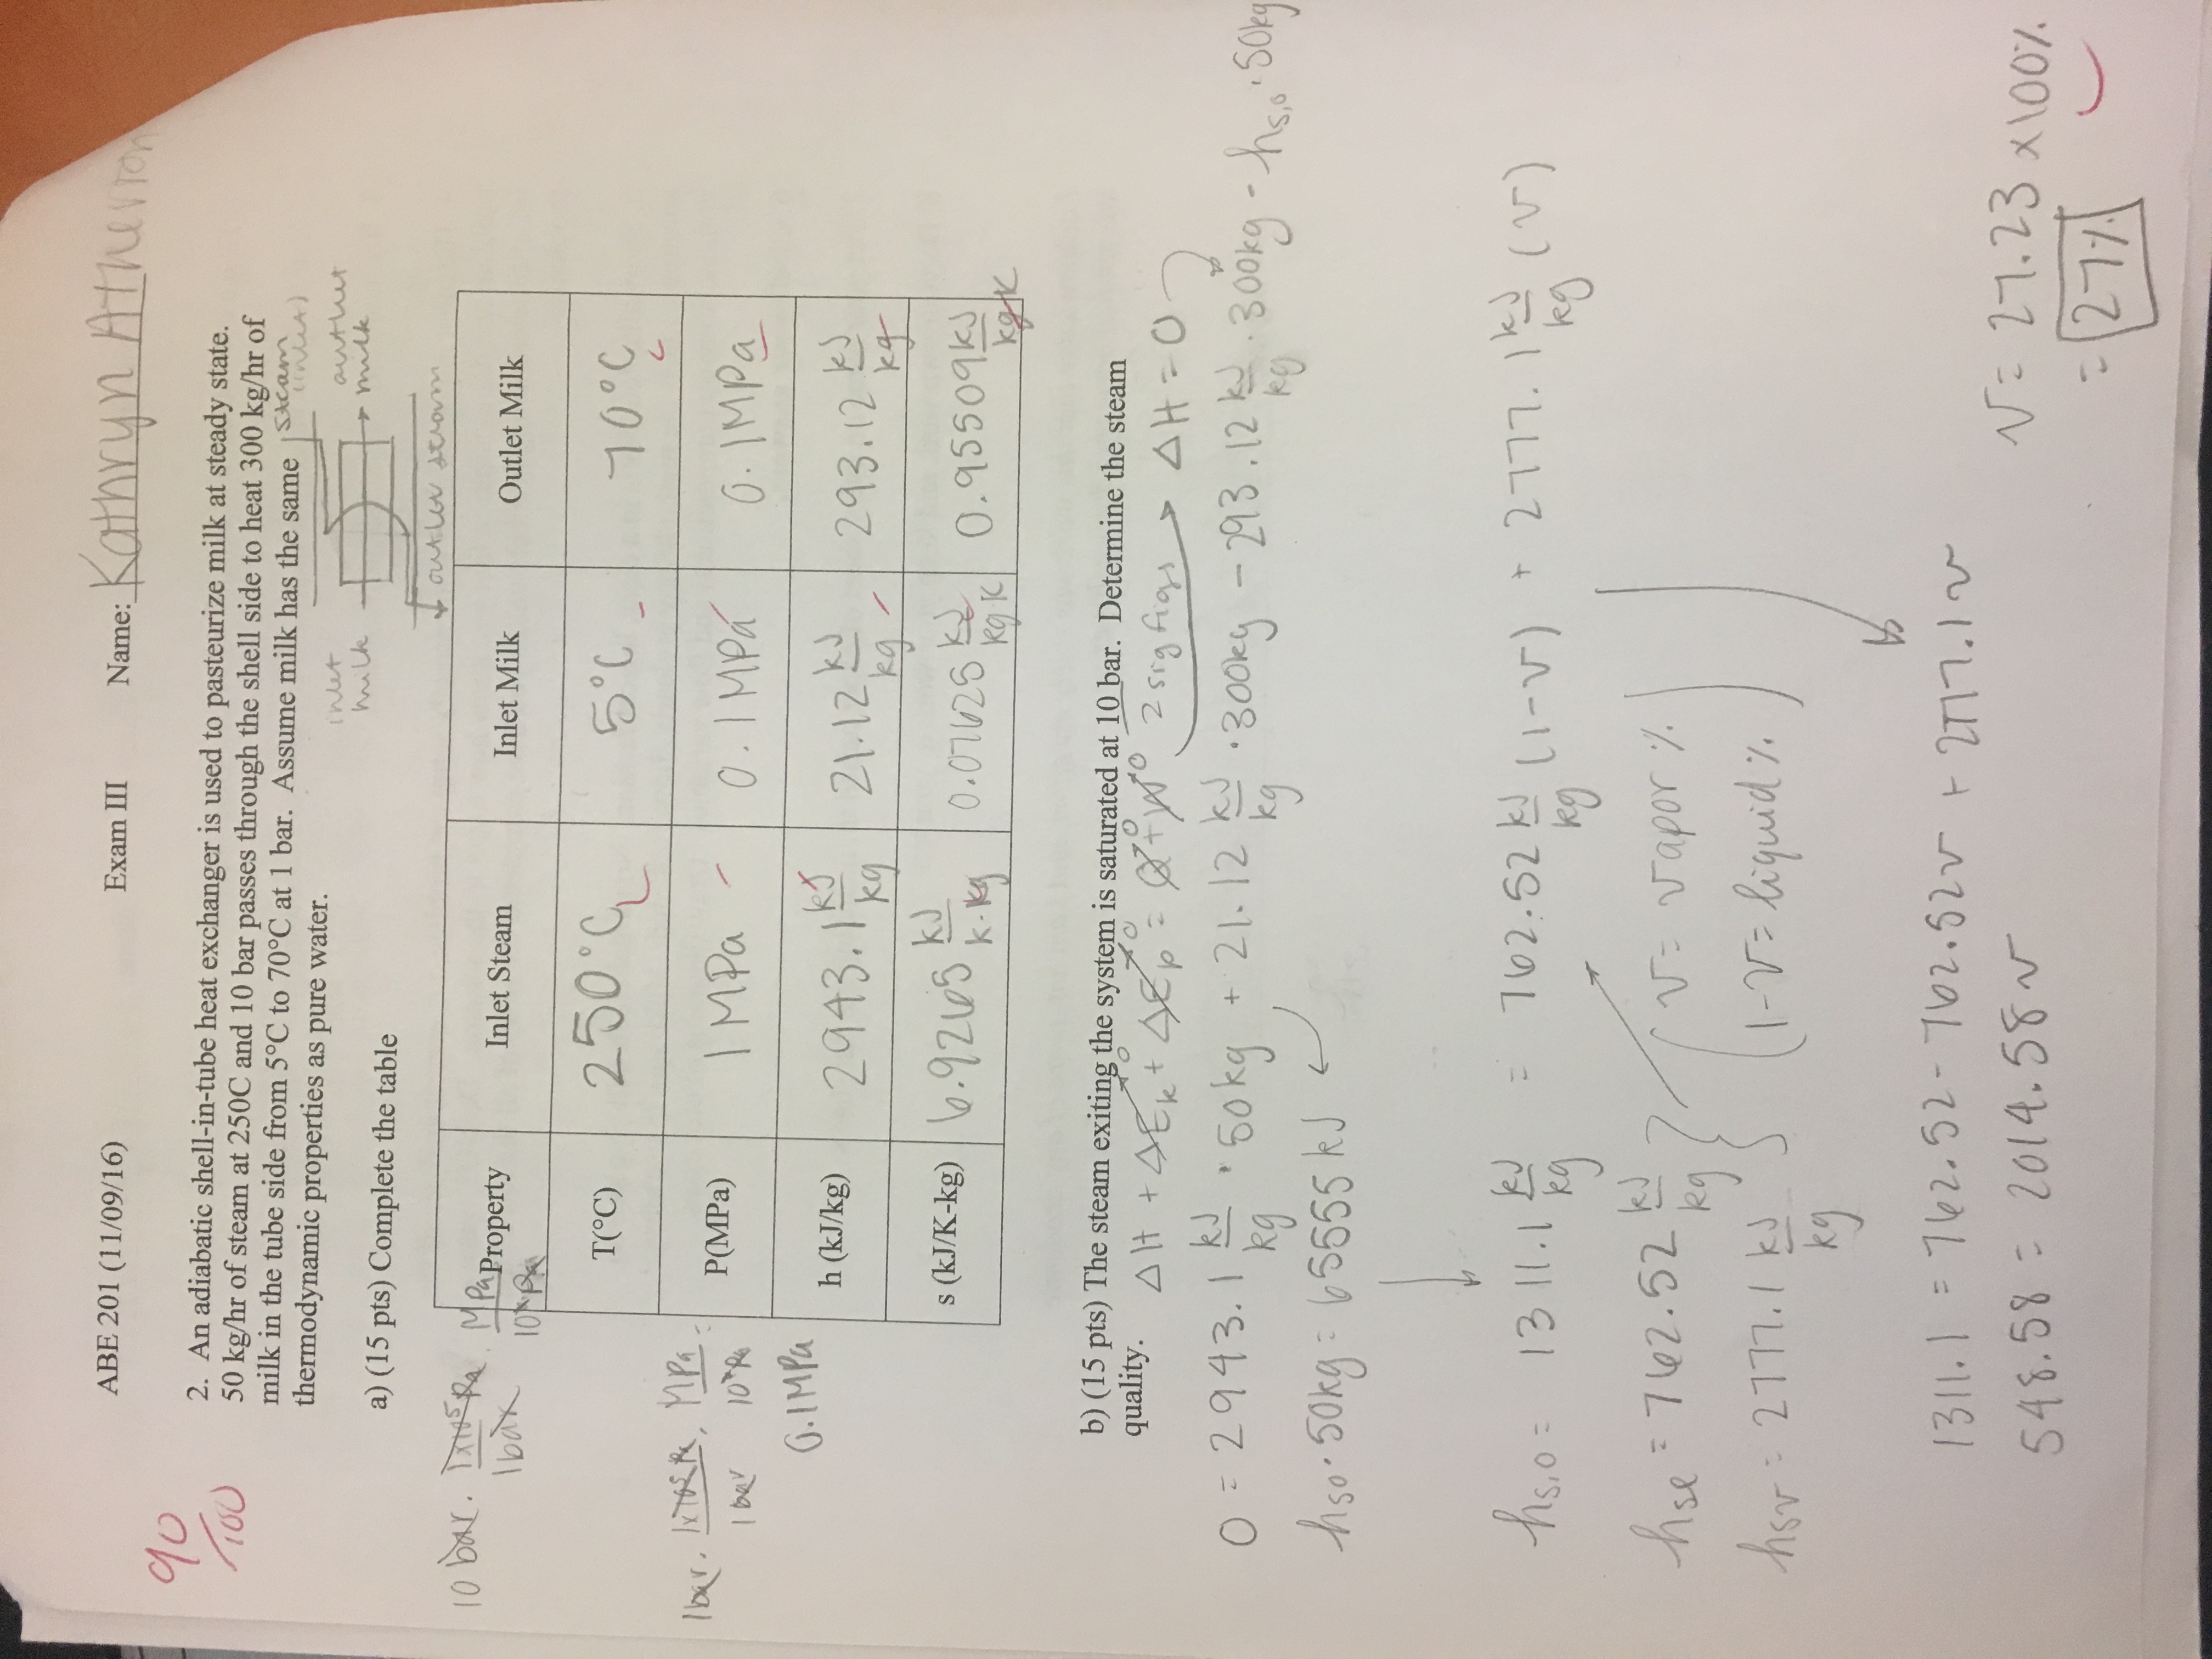 ABE 201 (11/09/16) Exam III Name: Kathryn Atherton
90/100
2. An adiabatic shell-in-tube heat exchanger is used to pasteurize milk at steady state.
50 kg/hr of steam at 250C and 10 bar passes through the shell side to heat 300 kg/hr of
milk in the tube side from 5°C to 70°C at 1 bar. Assume milk has the same
thermodynamic properties as pure water.
steam
(inlet)
inlet
milk
outlet
milk
outlet steam
a) (15 pts) Complete the table
10 bar · 1x10⁵ Pa / 1 bar · MPa / 10⁶ Pa
Property Inlet Steam Inlet Milk Outlet Milk
T(°C) 250°C 5°C 70°C
1 bar · 1x10⁵ Pa / 1 bar · MPa / 10⁶ Pa =
0.1 MPa
P(MPa) 1 MPa 0.1 MPa 0.1 MPa
h (kJ/kg) 2943.1 kJ/kg 21.12 kJ/kg 293.12 kJ/kg
s (kJ/K-kg) 6.9265 kJ/k·kg 0.07625 kJ/kg K 0.95509 kJ/kg K
b) (15 pts) The steam exiting the system is saturated at 10 bar. Determine the steam
quality.
ΔH + ΔEk→0 + ΔEp→0 = Q→0 + W→0 2 sig figs → ΔH = 0
0 = 2943.1 kJ/kg · 50kg + 21.12 kJ/kg · 300kg - 293.12 kJ/kg · 300kg - hs,o · 50kg
hso · 50kg = 65555 kJ
hs,o = 1311.1 kJ/kg = 762.52 kJ/kg (1-v) + 2777.1 kJ/kg (v)
hse = 762.52 kJ/kg
hsv = 2777.1 kJ/kg
v = vapor %
1-v = liquid %
1311.1 = 762.52 - 762.52v + 2777.1v
548.58 = 2014.58v
v = 27.23 x100%
= 27%